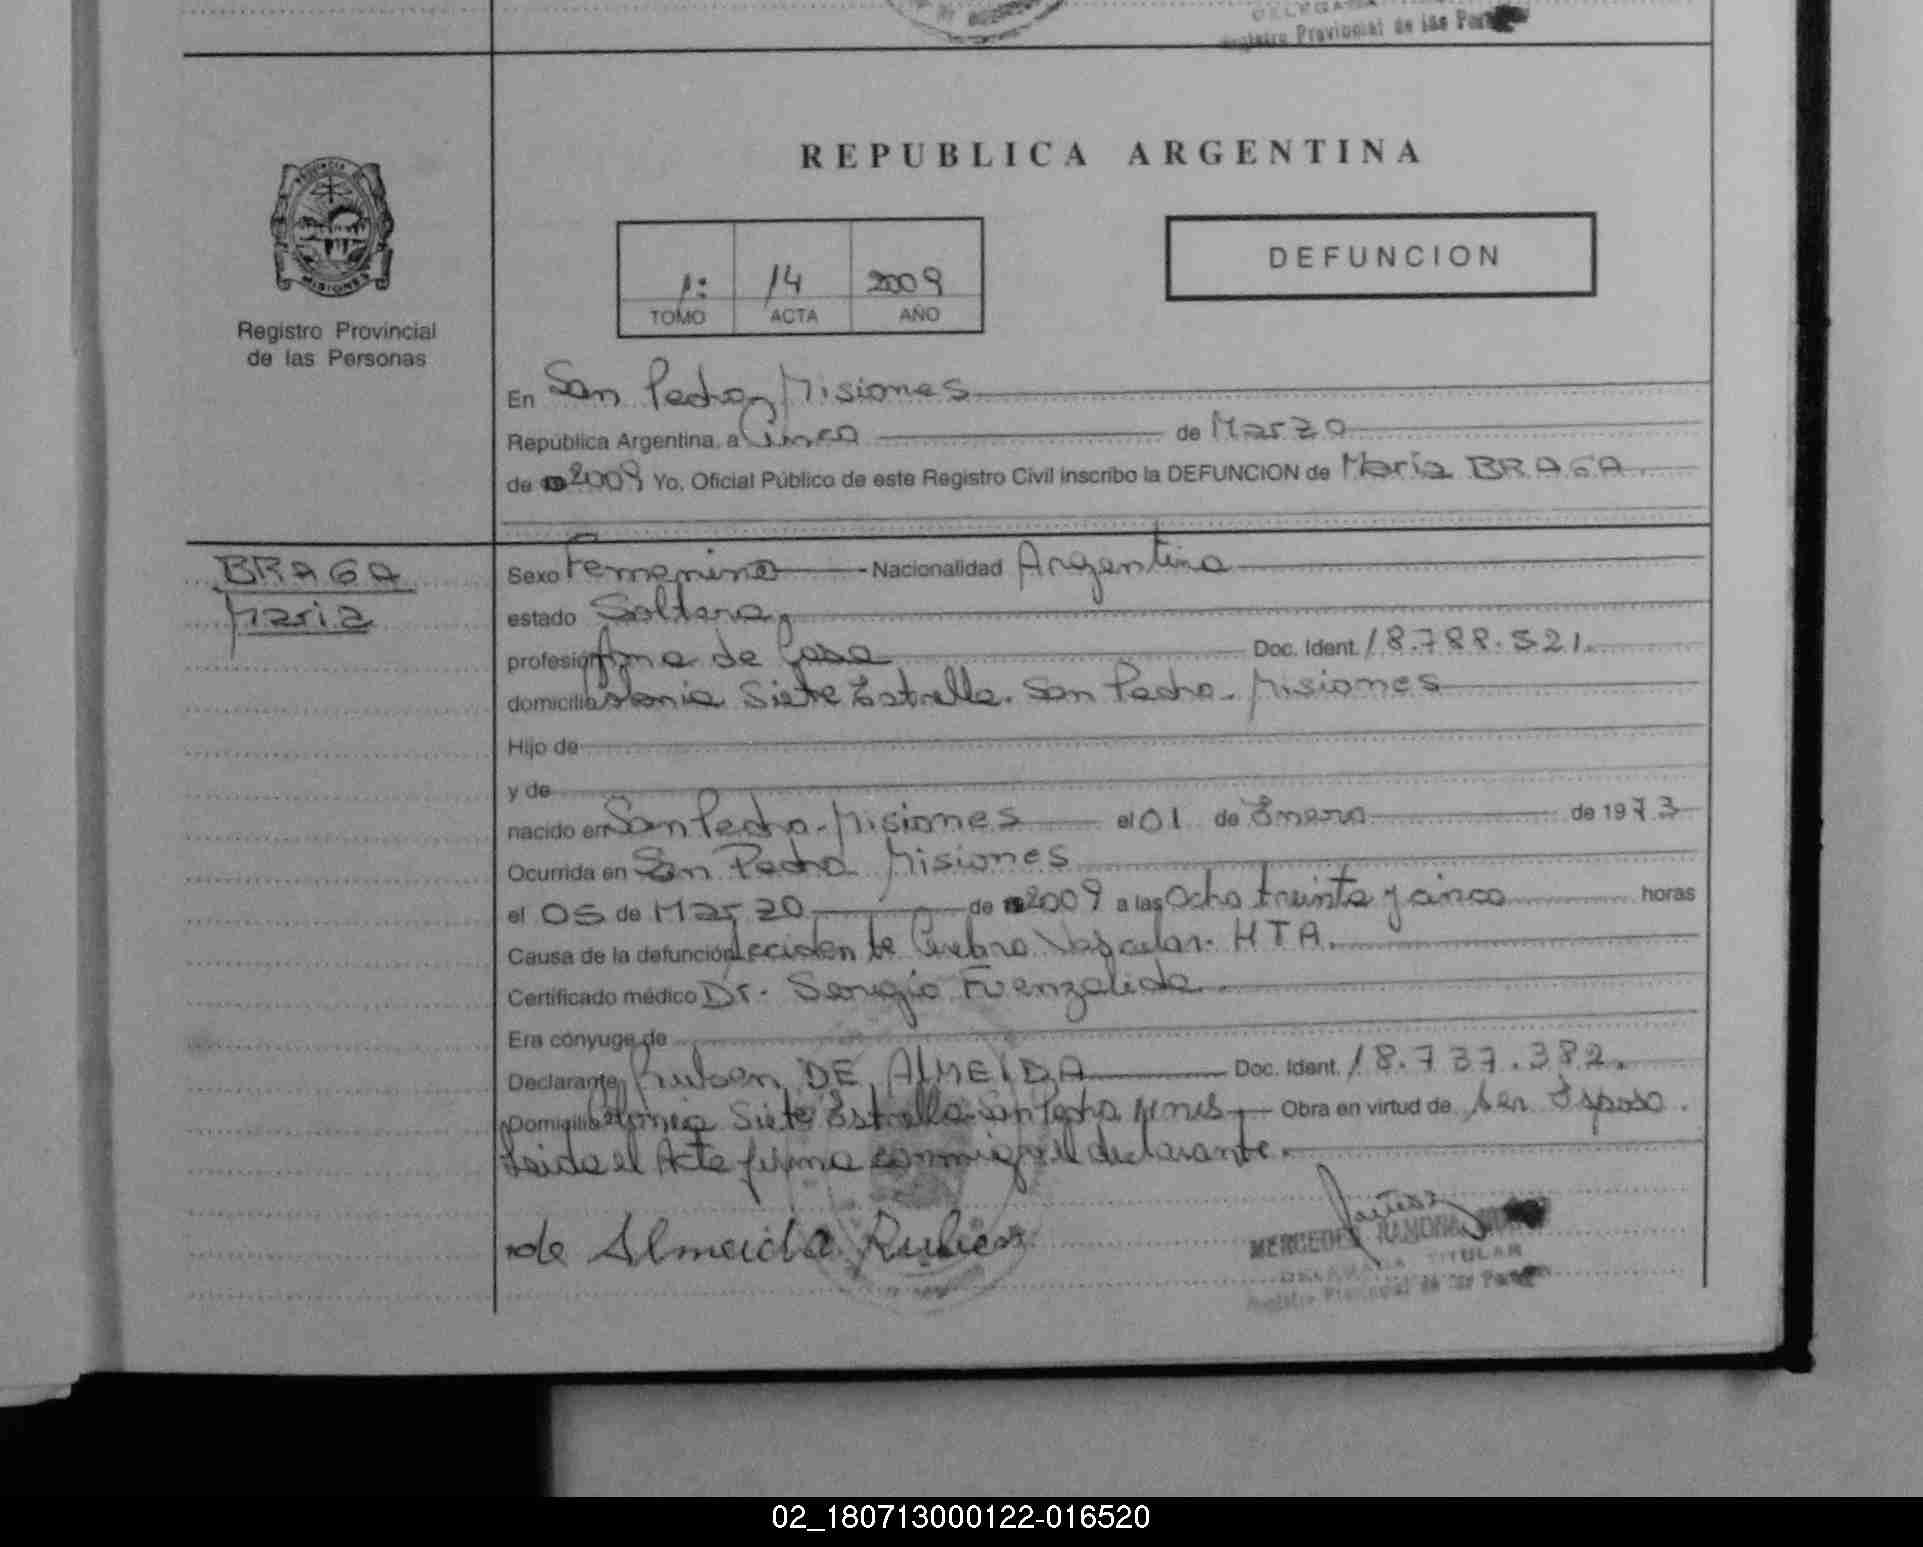 Registro Provincial de las Per
REPUBLICA ARGENTINA
PROVINCIA DE
MISIONES
Registro Provincial
de las Personas
1: 14 2009
TOMO ACTA AÑO
DEFUNCION
En San Pedro, Misiones
República Argentina, a Cinco de Marzo
de 2009 Yo, Oficial Público de este Registro Civil inscribo la DEFUNCION de Maria BRAGA
BRAGA
Maria
Sexo Femenino Nacionalidad Argentina
estado Soltera
profesión Ama de Casa Doc. Ident. 18.788.521.
domicilio Colonia Siete Estrella. San Pedro. Misiones
Hijo de
y de
nacido en San Pedro. Misiones el 01 de Enero de 1973
Ocurrida en San Pedro Misiones
el 05 de Marzo de 2009 a las Ocho treinta y cinco horas
Causa de la defunción Accidente Cerebro Vascular. HTA.
Certificado médico Dr. Sergio Fuenzalida
Era cónyuge de
Declarante Ruben DE ALMEIDA Doc. Ident. 18.737.382.
Domicilio Colonia Siete Estrella San Pedro Mnes Obra en virtud de Ser Esposo.
Leida el Acta firma conmigo el declarante.
de Almeida Ruben
MERCEDES RAMONA
TITULAR
Registro Provincial de las Per
02_180713000122-016520